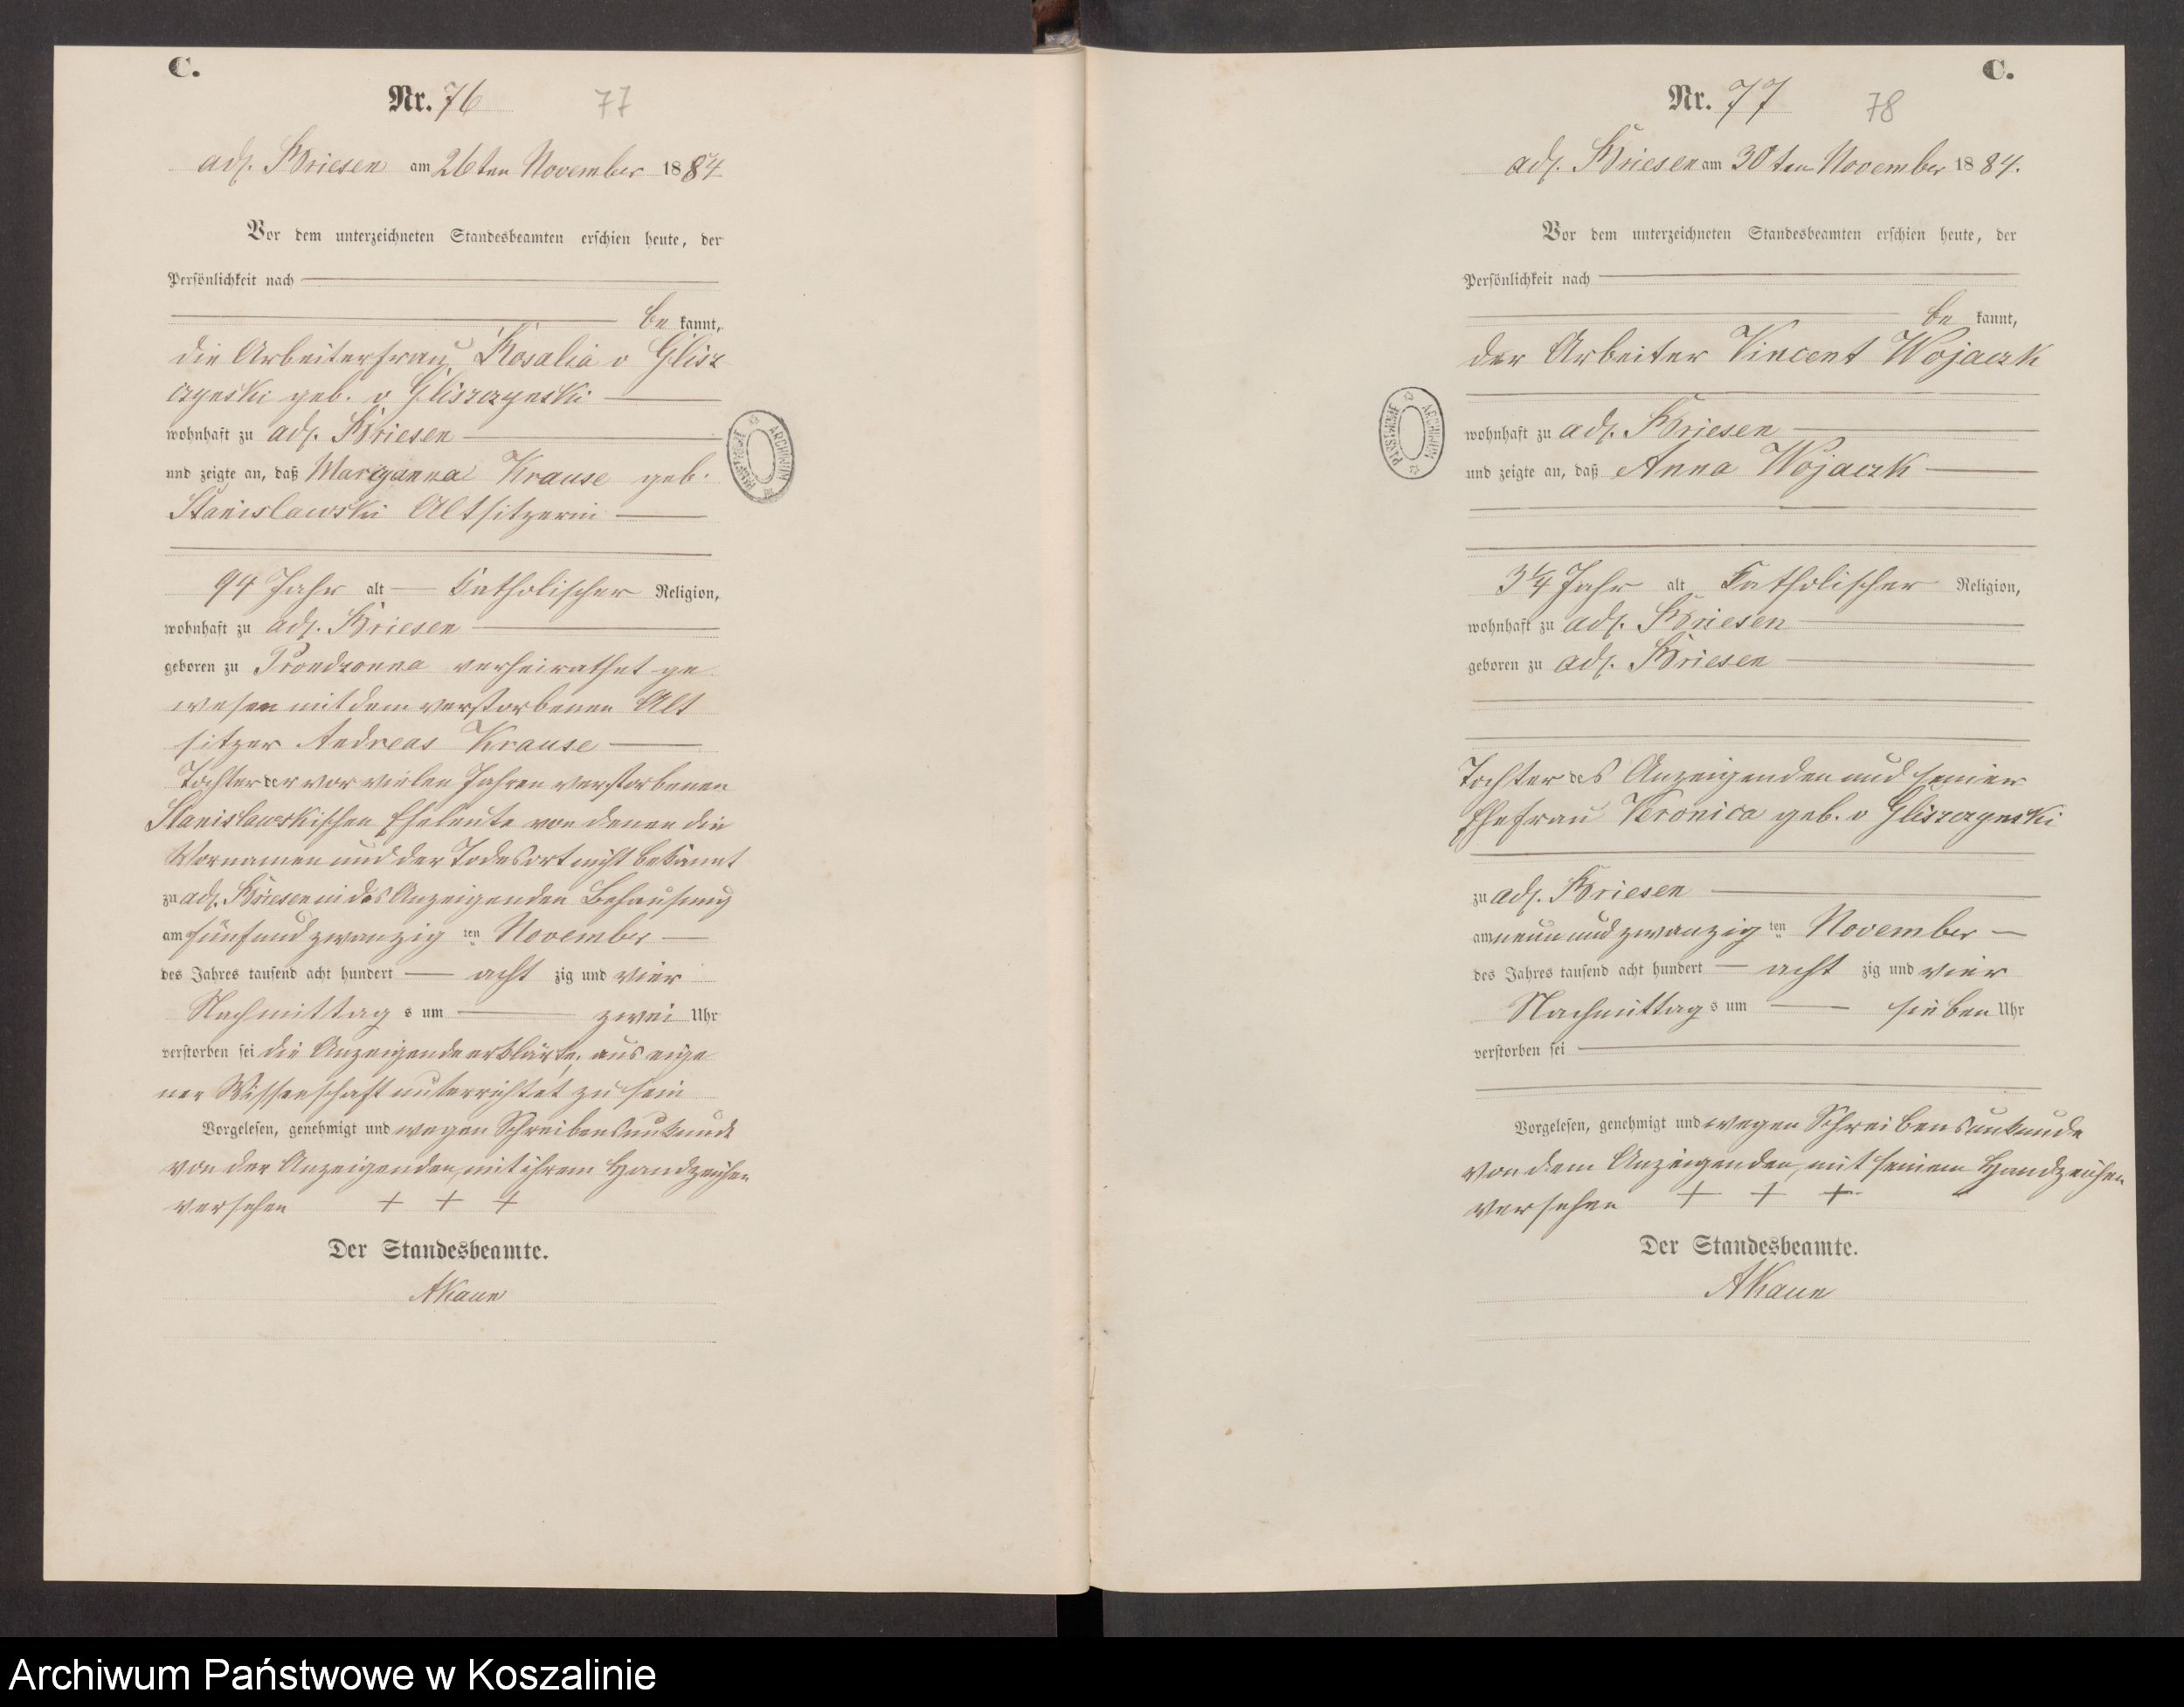 C.
Nr. 76
77
adl. Briesen am 26ten November 1884
Vor dem unterzeichneten Standesbeamten erschien heute, der
Persönlichkeit nach
be kannt,
die Arbeiterfrau Rosalia v Glisz
czynski geb. v Gliszczynski
wohnhaft zu adl. Briesen
und zeigte an, daß Maryanna Krause geb.
Stanislawski Altsitzerin
94 Jahr alt katholischer Religion,
wohnhaft zu adl. Briesen
geboren zu Prondzonna verheirathet ge
wesen mit dem verstorbenen Alt
sitzer Andreas Krause
Tochter der vor vielen Jahren verstorbenen
Stanislawskischen Eheleute von denen die
Vornamen und der Todesort nicht bekannt
zu adl. Briesen in des Anzeigenden Behausung
am fünfundzwanzig ten November
des Jahres tausend acht hundert acht zig und vier
Nachmittag s um zwei Uhr
verstorben sei die Anzeigende erklärte, aus eige
ner Wissenschaft unterrichtet zu sein
Vorgelesen, genehmigt und wegen Schreibensunkunde
von der Anzeigenden, mit ihrem Handzeichen
versehen + + +
Der Standesbeamte.
ARCHIWUM PAŃSTWOWE
C.
Nr. 77
78
adl. Briesen am 30ten November 1884.
Vor dem unterzeichneten Standesbeamten erschien heute, der
Persönlichkeit nach
be kannt,
der Arbeiter Vincent Wojaczk
wohnhaft zu adl. Briesen
und zeigte an, daß Anna Wojaczk
3¼ Jahr alt katholischer Religion,
wohnhaft zu adl. Briesen
geboren zu adl. Briesen
Tochter des Anzeigenden und seiner
Ehefrau Veronica geb. v Gliszczynski
zu adl. Briesen
am neunundzwanzig ten November
des Jahres tausend acht hundert acht zig und vier
Nachmittag s um sieben Uhr
verstorben sei
Vorgelesen, genehmigt und wegen Schreibensunkunde
von dem Anzeigenden, mit seinem Handzeichen
versehen + + +
Der Standesbeamte.
ARCHIWUM PAŃSTWOWE
Archiwum Państwowe w Koszalinie